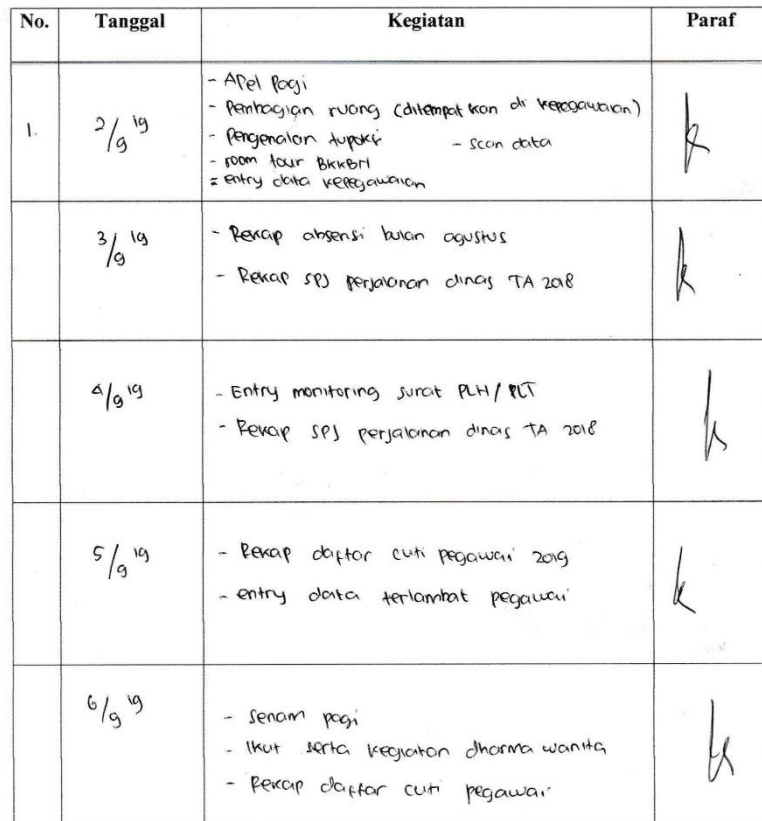 No. Tanggal Kegiatan Paraf
- Apel Pagi
- Pembagian ruang (ditempatkan di kepegawaian)
1. 2/9 19 - Pengenalan tupoksi - scan data
- room tour BKKBN
= entry data kepegawaian
3/9 19 - Rekap absensi bulan agustus
- Rekap SPJ perjalanan dinas TA 2018
4/9 19 - Entry monitoring surat PLH/PLT
- Rekap SPJ perjalanan dinas TA 2018
5/9 19 - Rekap daftar cuti pegawai 2019
- entry data terlambat pegawai
6/9 19 - senam pagi
- Ikut serta kegiatan dharma wanita
- Rekap daftar cuti pegawai